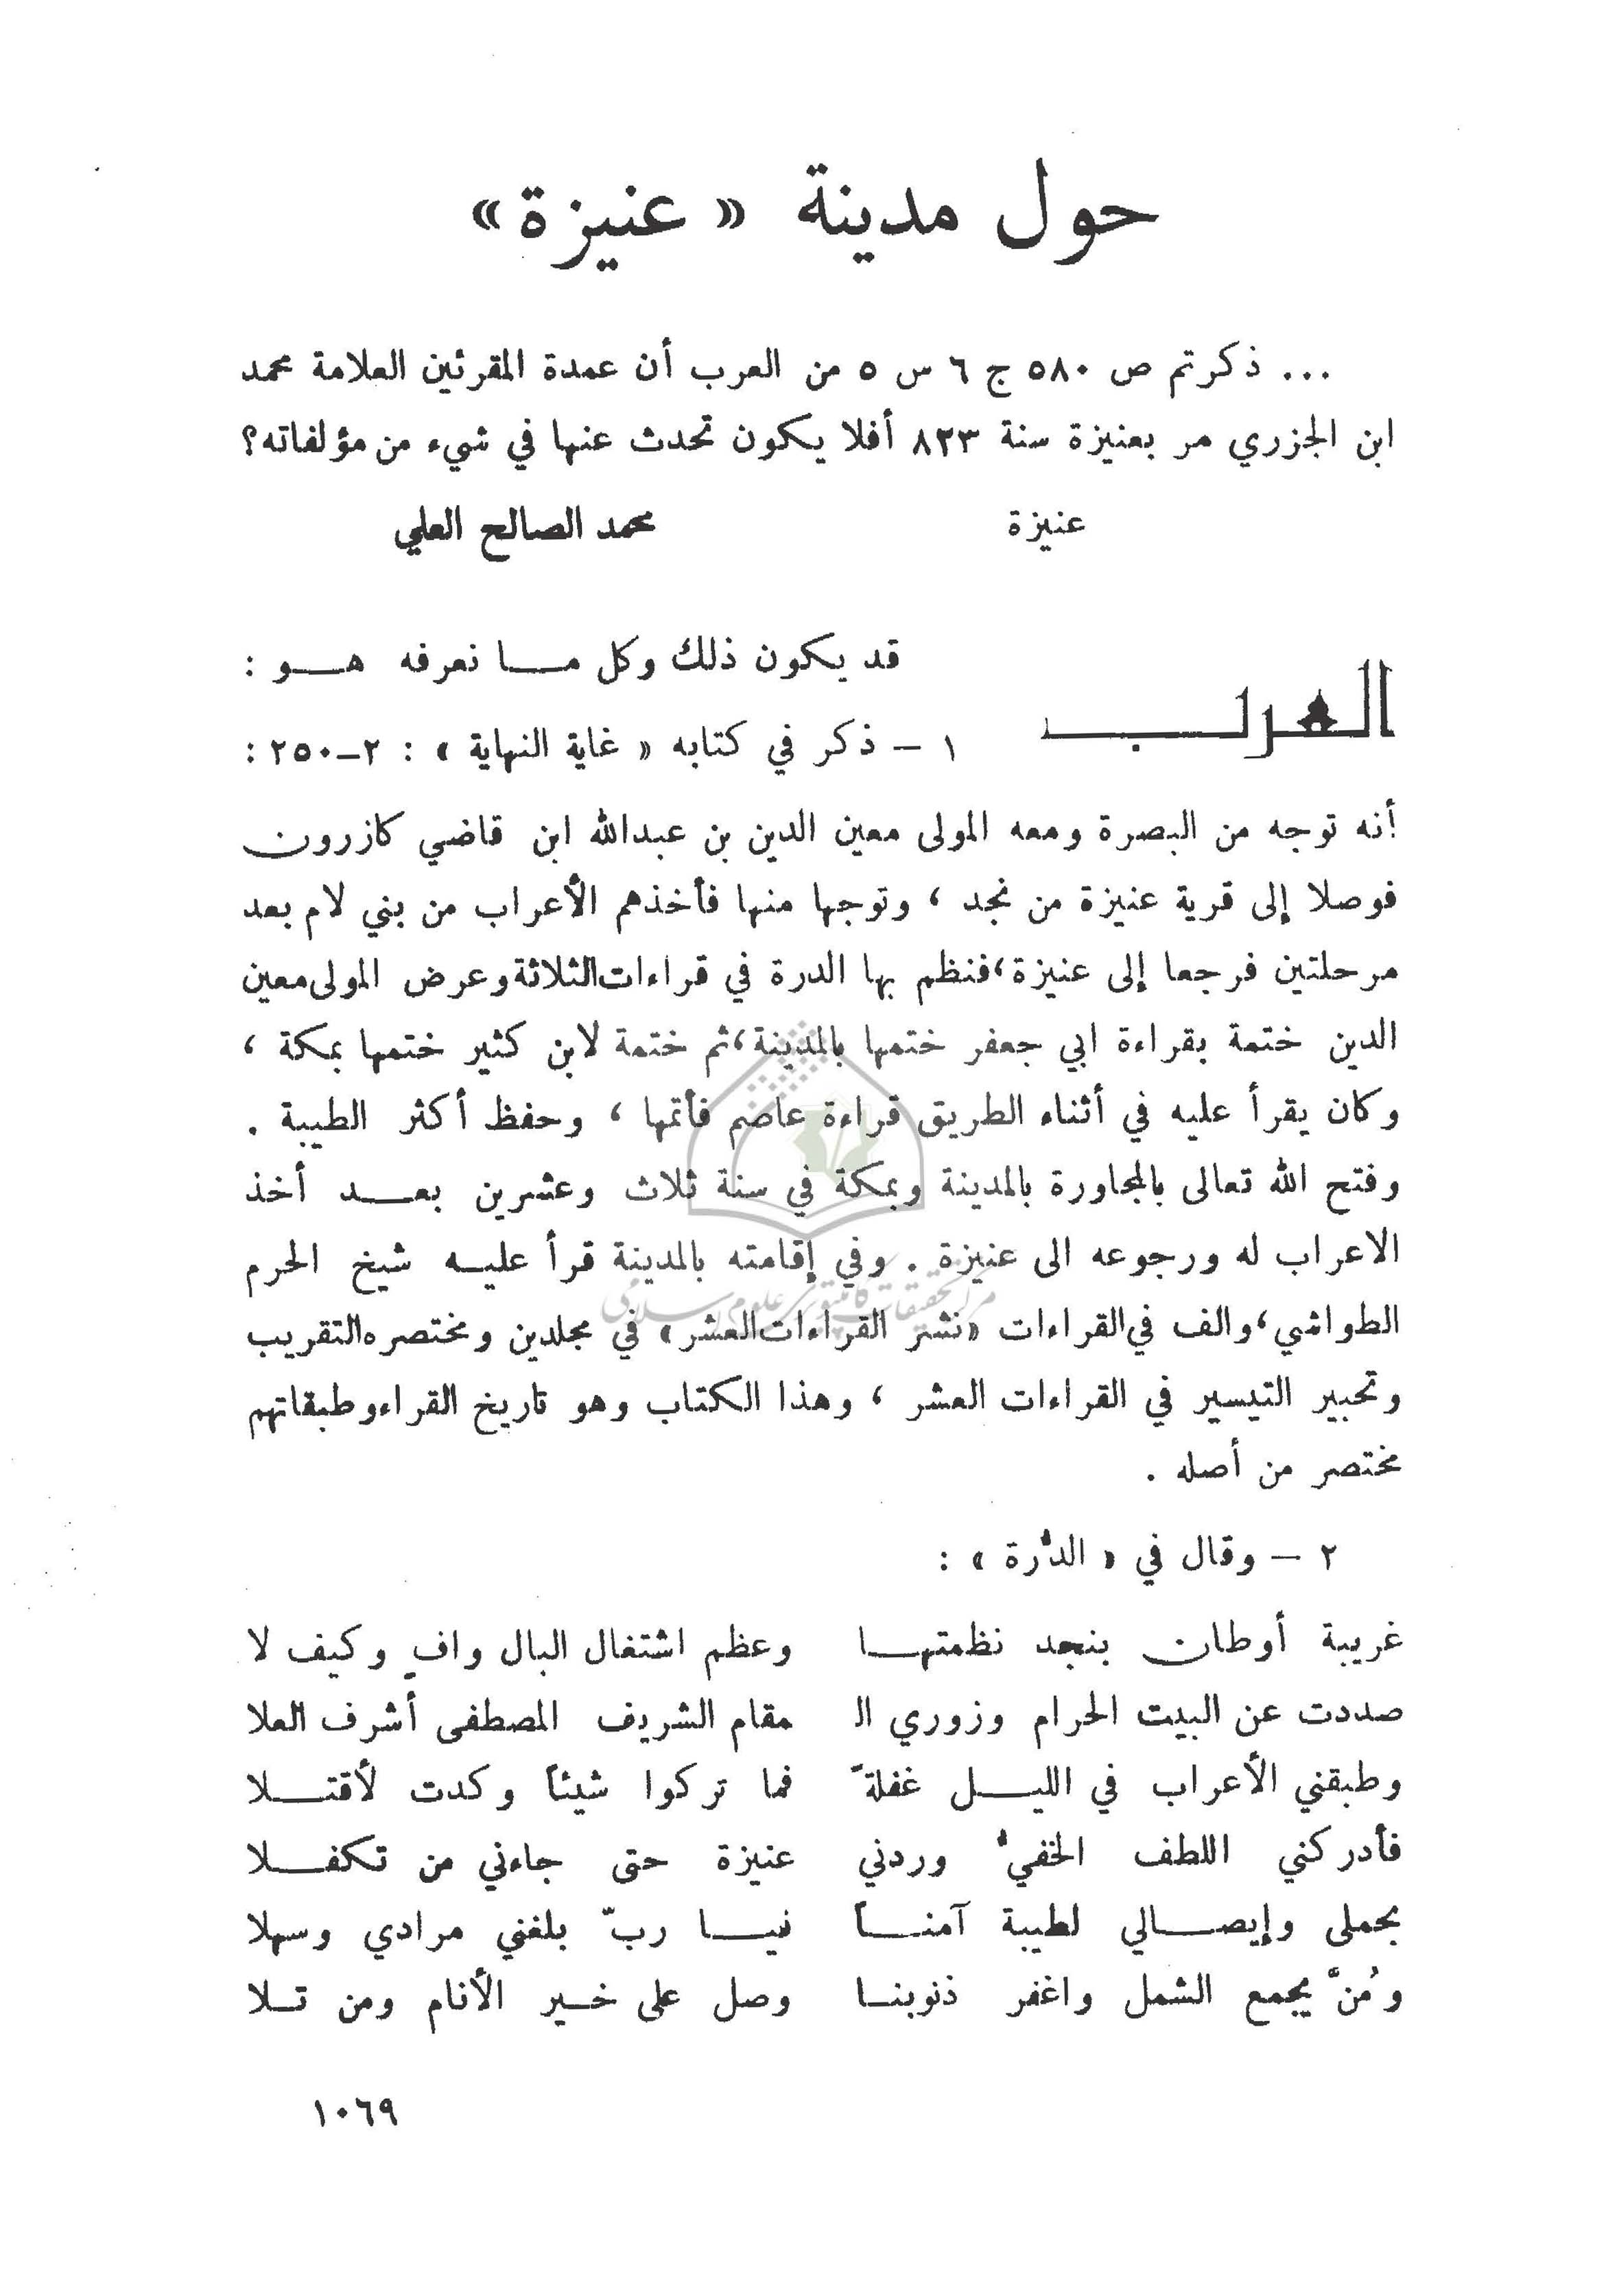 حول مدينة « عنيزة »
... ذكرتم ص ٥٨٠ ج ٦ س ٥ من العرب أن عمدة المقرئين العلامة محمد
ابن الجزري مر بعنيزة سنة ٨٢٣ أفلا يكون تحدث عنها في شيء من مؤلفاته؟
عنيزة محمد الصالح العلي
العرب
قد يكون ذلك وكل مـــا نعرفه هـــو :
١ – ذكر في كتابه « غاية النهاية » : ٢–٢٥٠ :
أنه توجه من البصرة ومعه المولى معين الدين بن عبدالله ابن قاضي كازرون
فوصلا إلى قرية عنيزة من نجد ، وتوجها منها فأخذهم الأعراب من بني لام بعد
مرحلتين فرجعا إلى عنيزة،فنظم بها الدرة في قراءات الثلاثة وعرض المولى معين
الدين ختمة بقراءة ابي جعفر ختمها بالمدينة،ثم ختمة لابن كثير ختمها بمكة ،
وكان يقرأ عليه في أثناء الطريق قراءة عاصم فأتمها ، وحفظ أكثر الطيبة .
وفتح الله تعالى بالمجاورة بالمدينة وبمكة في سنة ثلاث وعشرين بعـــد أخذ
الاعراب له ورجوعه الى عنيزة . وفي إقامته بالمدينة قرأ عليـه شيخ الحرم
مركز تحقيقات كامپيوتري علوم اسلامي
الطواشي،والف في القراءات «نشر القراءات العشر» في مجلدين ومختصره التقريب
وتحبير التيسير في القراءات العشر ، وهذا الكتاب وهو تاريخ القراء وطبقاتهم
مختصر من أصله .
٢ – وقال في « الدُّرة » :
غريبة أوطان بنجد نظمتهـــا وعظم اشتغال البال وافٍ وكيف لا
صددت عن البيت الحرام وزوري الـ مقام الشريف المصطفى أشرف العلا
وطبقني الأعراب في الليـــل غفلةً فما تركوا شيئاً وكدت لأقتـــلا
فأدركني اللطف الخفيُّ وردني عنيزة حتى جاءني من تكفـــلا
بحملى وإيصـــالي لطيبة آمنـــاً فيـــا ربّ بلغني مرادي وسهلا
ومُنَّ بجمع الشمل واغفر ذنوبنـا وصل على خـير الأنام ومن تـلا
١٠٦٩